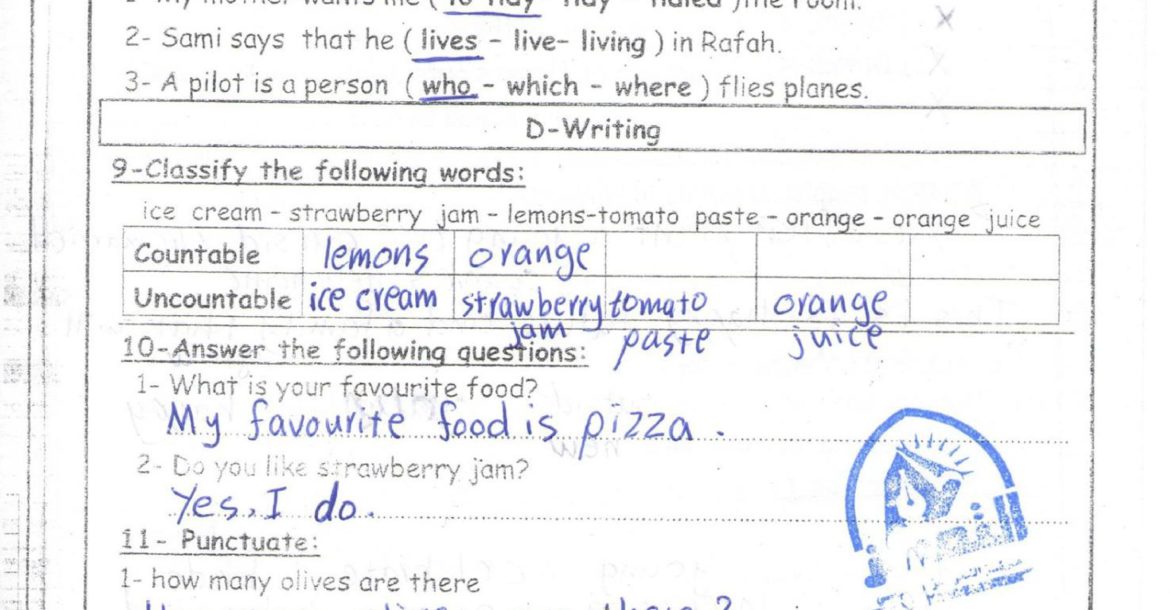 1- My mother wants me ( to tidy - tidy - tidied ) the room.
2- Sami says that he ( lives - live- living ) in Rafah.
3- A pilot is a person ( who - which - where ) flies planes.
D-Writing
9-Classify the following words:
ice cream - strawberry jam - lemons-tomato paste - orange - orange juice
Countable lemons orange
Uncountable ice cream strawberry jam tomato paste orange juice
10-Answer the following questions:
1- What is your favourite food?
My favourite food is pizza.
2- Do you like strawberry jam?
Yes, I do.
11- Punctuate:
1- how many olives are there
How many olives are there?